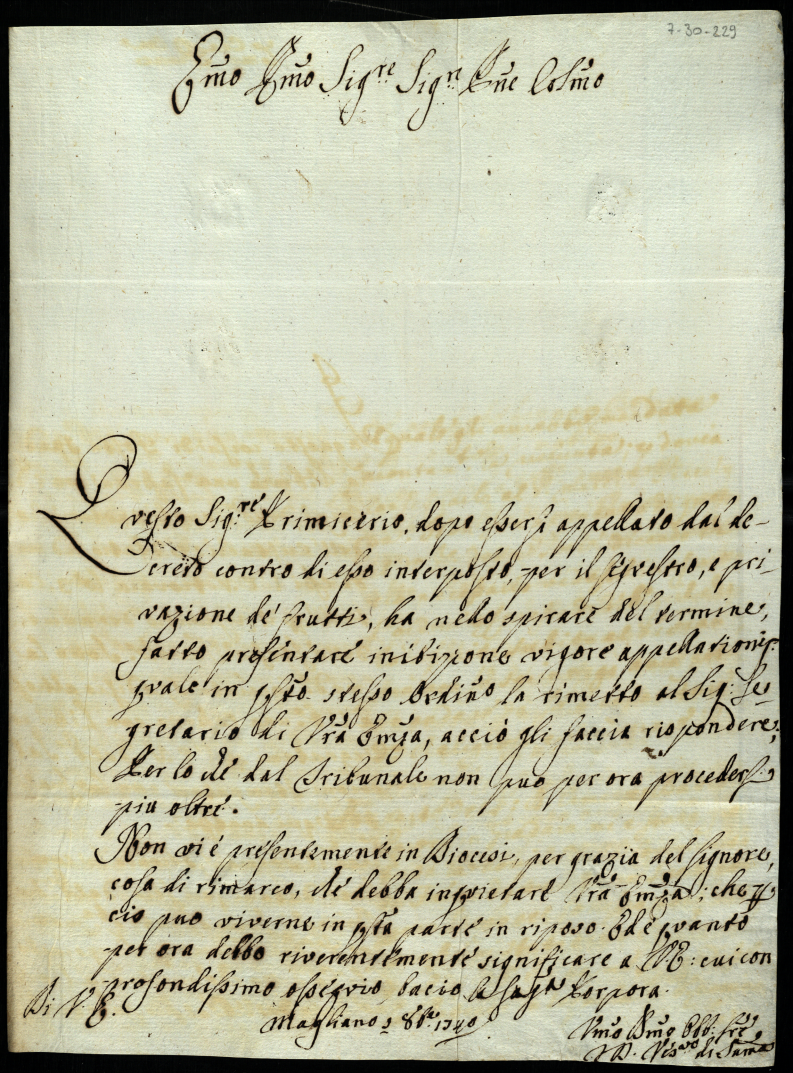 7-30-229
Emo Rmo Sigre Sigre Pne Colmo
Questo Sig.re Primicerio, dopo essersi appellato dal de-
creto contro di esso interposto, per il seqvestro, e pri-
vazione de' frutti, ha nello spirare del termine,
fatto presentare inibizione vigore appellationis
quale in qsto stesso Ordino la rimetto al Sig: Se-
gretario di Vra Emza, acciò gli faccia rispondere;
Per lo che dal Tribunale non può per ora procedersi
più oltre.
Non vi è presentemente in Diocesi, per grazia del Signore,
cosa di rimarco, che debba inquietare Vra Emza; che
ciò può viverne in qsta parte in riposo. Ed è quanto
per ora debbo riverentemente significare a VE: cui con
profondissimo ossequio bacio la Sagra Porpora.
Di V. E.
Magliano 9 8bre 1740
Vmo Dmo Obb: Sre
Vesvo di